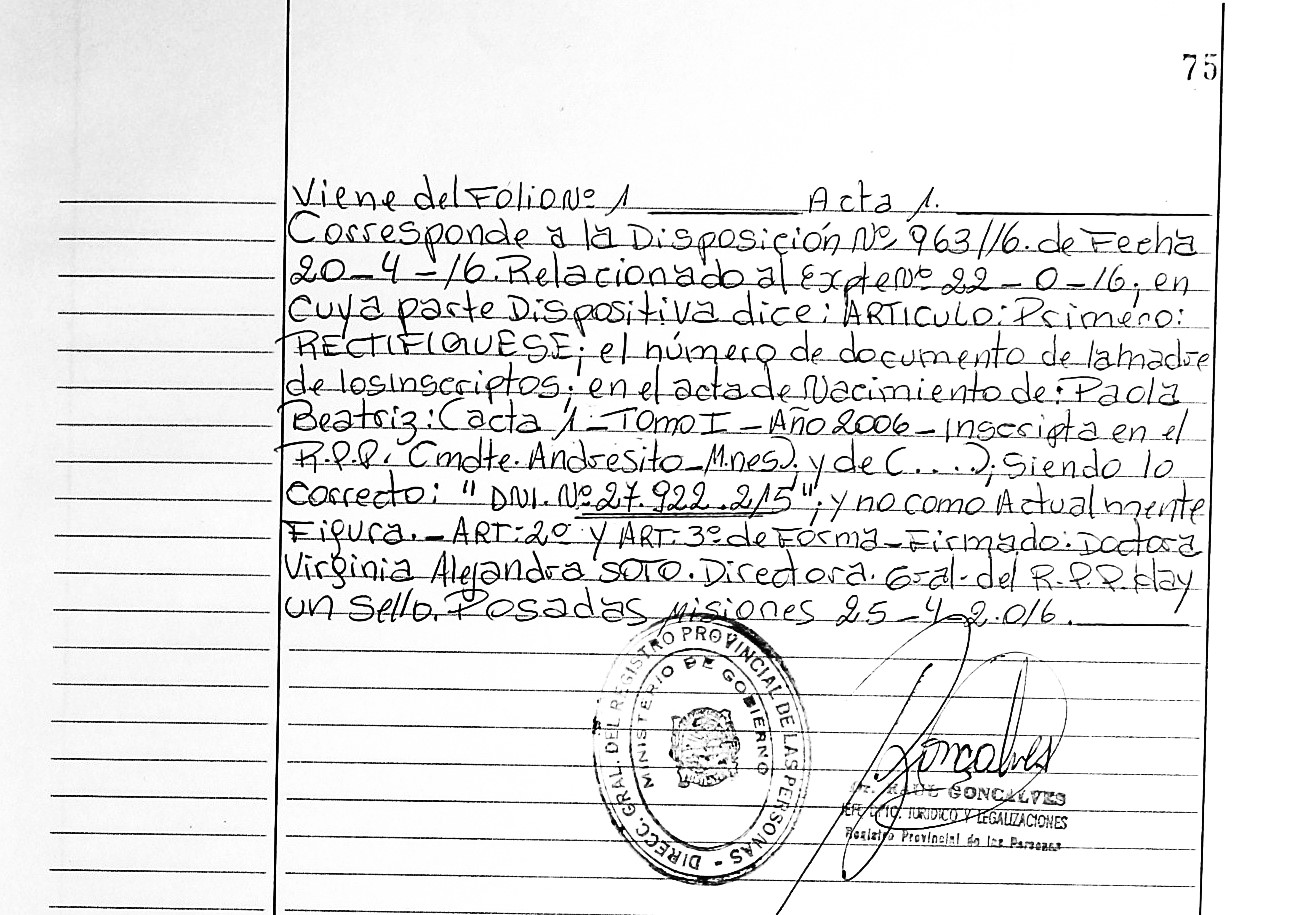 75
Viene del Folio Nº 1 ________ Acta 1. ________
Corresponde a la Disposición Nº 963/16. de Fecha
20-4-16. Relacionado al Expte Nº 22-0-16; en
cuya parte Dispositiva dice: ARTICULO: Primero:
RECTIFIQUESE; el número de documento de la madre
de los Inscriptos; en el acta de Nacimiento de: Paola
Beatriz: (acta 1 - Tomo I - Año 2006 - Inscripta en el
R.P.P. Cmdte. Andresito - M.nes). y de (....); Siendo lo
Correcto: "DNI. Nº 27.922.215"; y no como Actualmente
Figura. - ART: 2º y ART: 3º de Forma - Firmado: Doctora
Virginia Alejandra SOTO. Directora. Gral. del R.P.P. Hay
un Sello. Posadas Misiones 25-4-2.016. ________
DIRECC. GRAL. DEL REGISTRO PROVINCIAL DE LAS PERSONAS -
MINISTERIO DE GOBIERNO
Gonçalves
RAUL GONCALVES
JURIDICO Y LEGALIZACIONES
Registro Provincial de las Personas